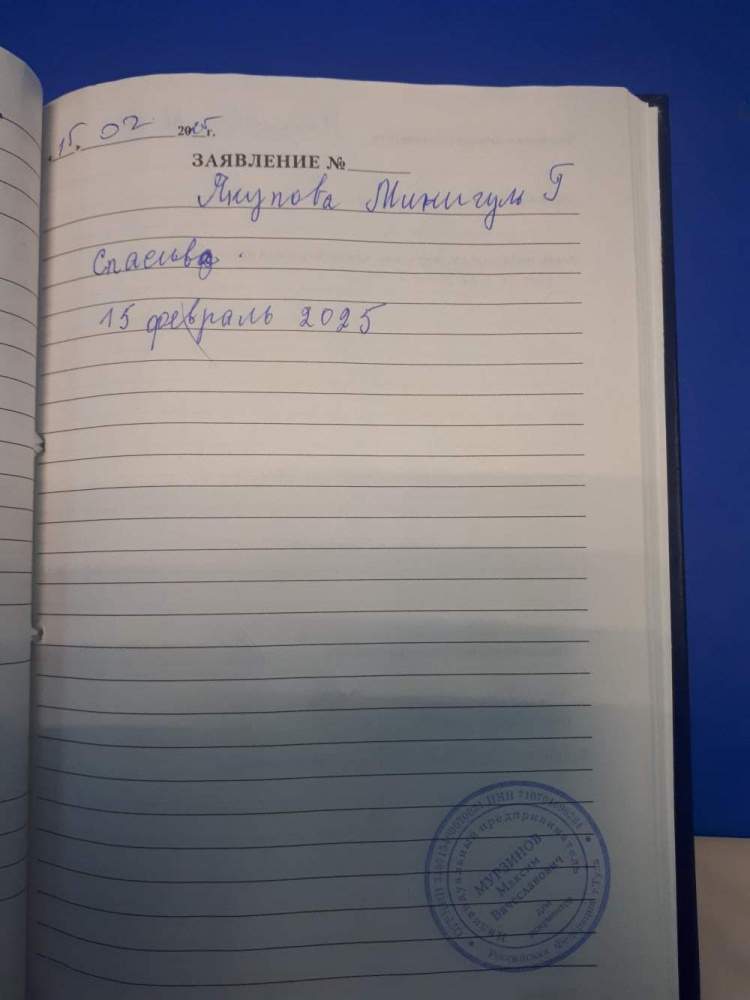 15. 02 2025 г.
ЗАЯВЛЕНИЕ №
Якупова Минигуль Г
Спасибо.
15 февраль 2025
Индивидуальный предприниматель
МУРЗИНОВ
Максим
Вячеславович
для
документов
Российская Федерация г.Тула
ОГРНИП
ИНН